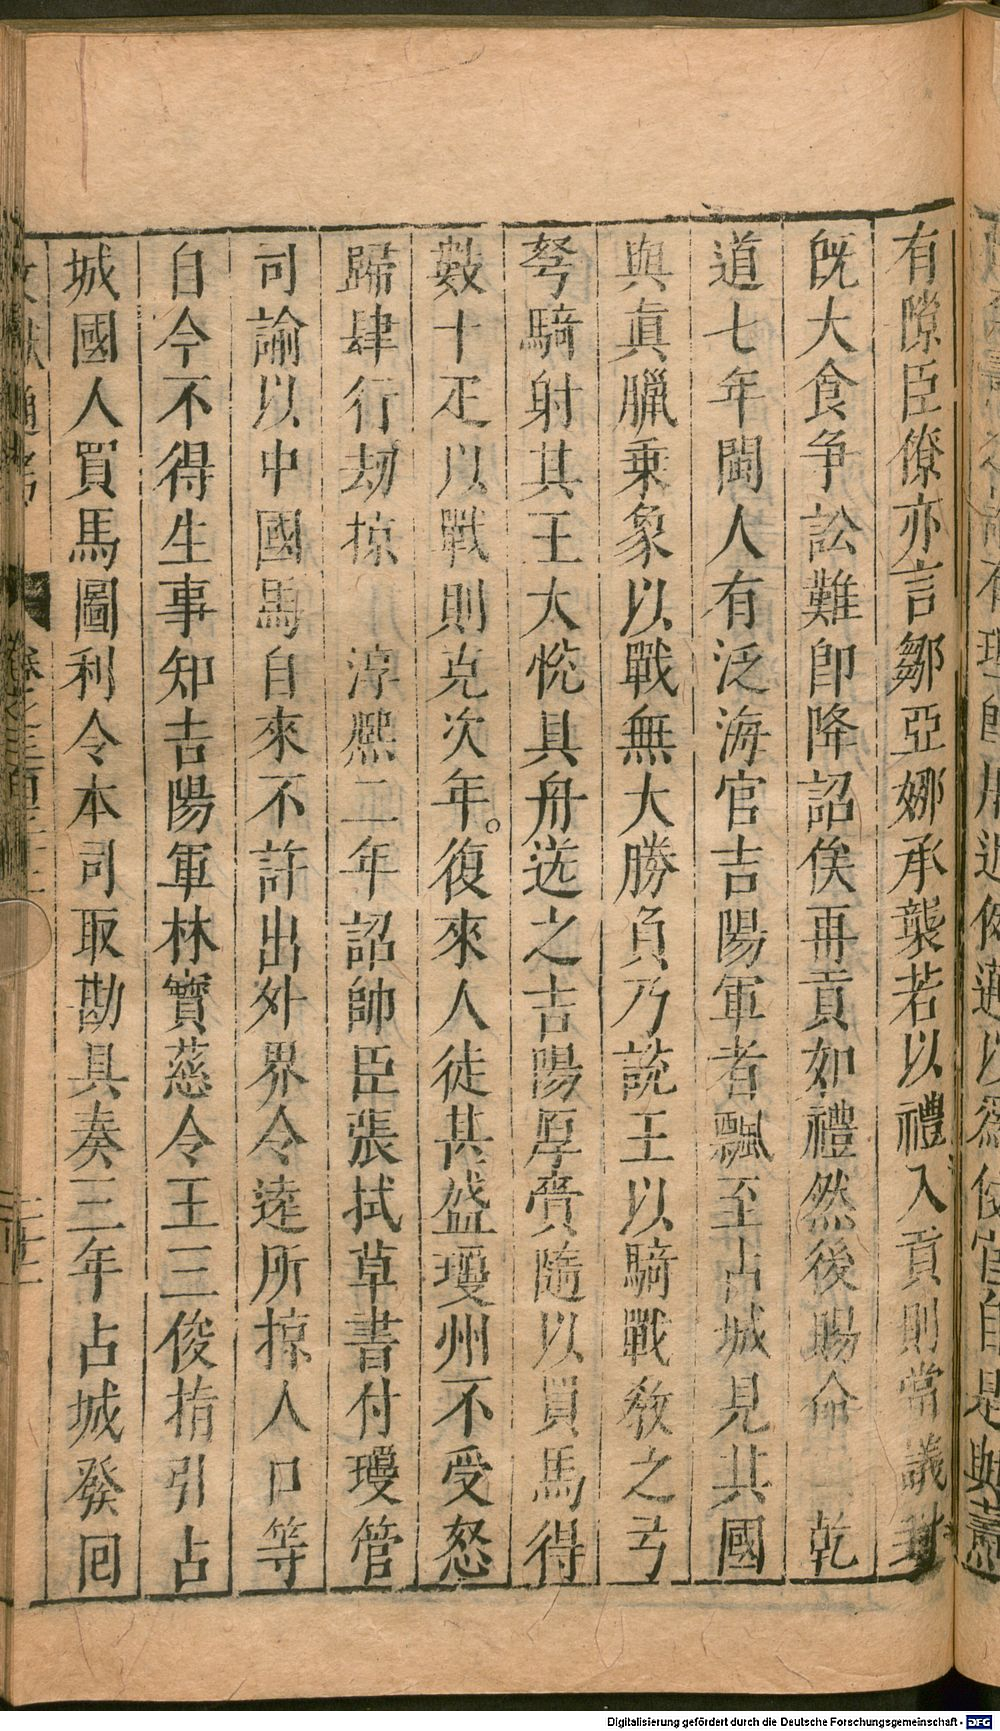 有隙臣僚亦言鄒亞娜承襲若以禮入貢則當議封
旣大食争訟難即降詔俟再貢如禮然後賜命 乾
道七年閩人有泛海官吉陽軍者飄至占城見其國
與眞臘乗象以戰無大勝負乃説王以騎戰教之弓
弩騎射其王大悅具舟送之吉陽厚賫隨以買馬得
數十疋以戰則克次年。復來人徒甚盛瓊州不受怒
歸肆行刼掠 淳熈二年詔帥臣張拭草書付瓊管
司諭以中國馬自來不許出外界令逵所掠人口等
自今不得生事知吉陽軍林寳慈令王三俊指引占
城國人買馬圖利令本司取勘具奏三年占城發囘
Digitalisierung gefördert durch die Deutsche Forschungsgemeinschaft - DFG